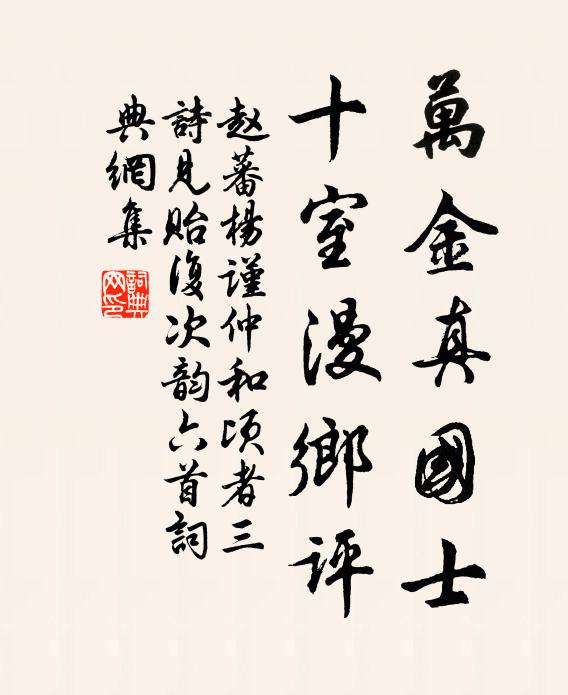 萬金真國士
十室漫鄉評
赵蕃楊謹仲和頃者三
詩見貽復次韵六首詞
典網集
詞典
网印